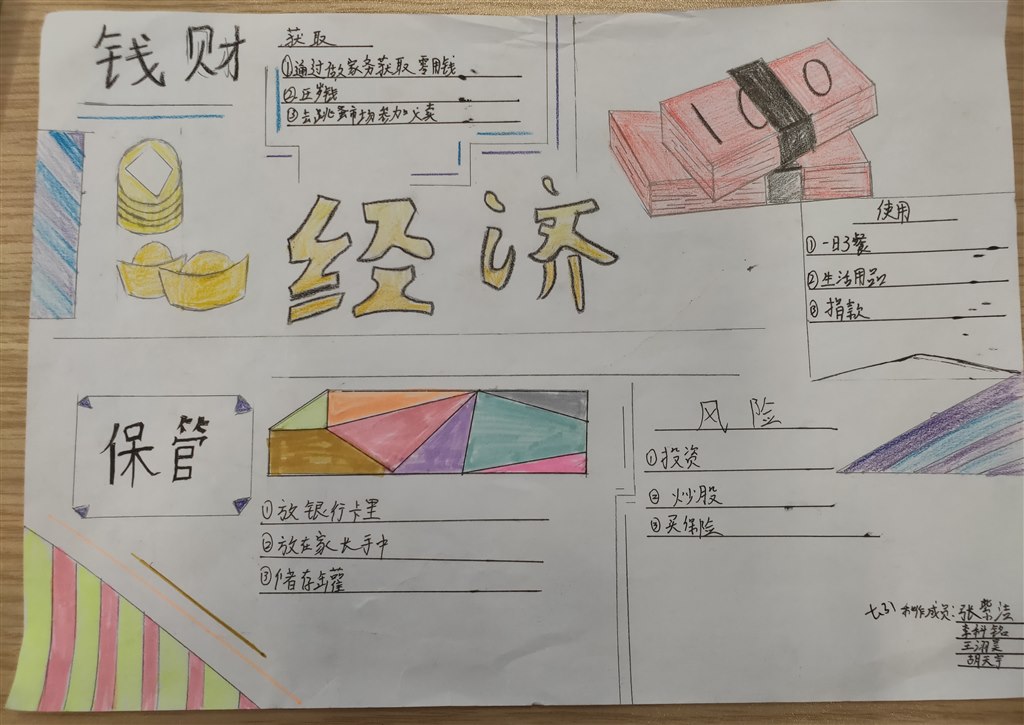 钱财
获取
①通过做家务获取零用钱
②压岁钱
③去跳蚤市场参加义卖
100
经济
使用
①一日3餐
②生活用品
③捐款
保管
①放银行卡里
②放在家长手中
③储存罐
风险
①投资
②炒股
③买保险
制作成员:张紫洁
李科铭
胡天宇